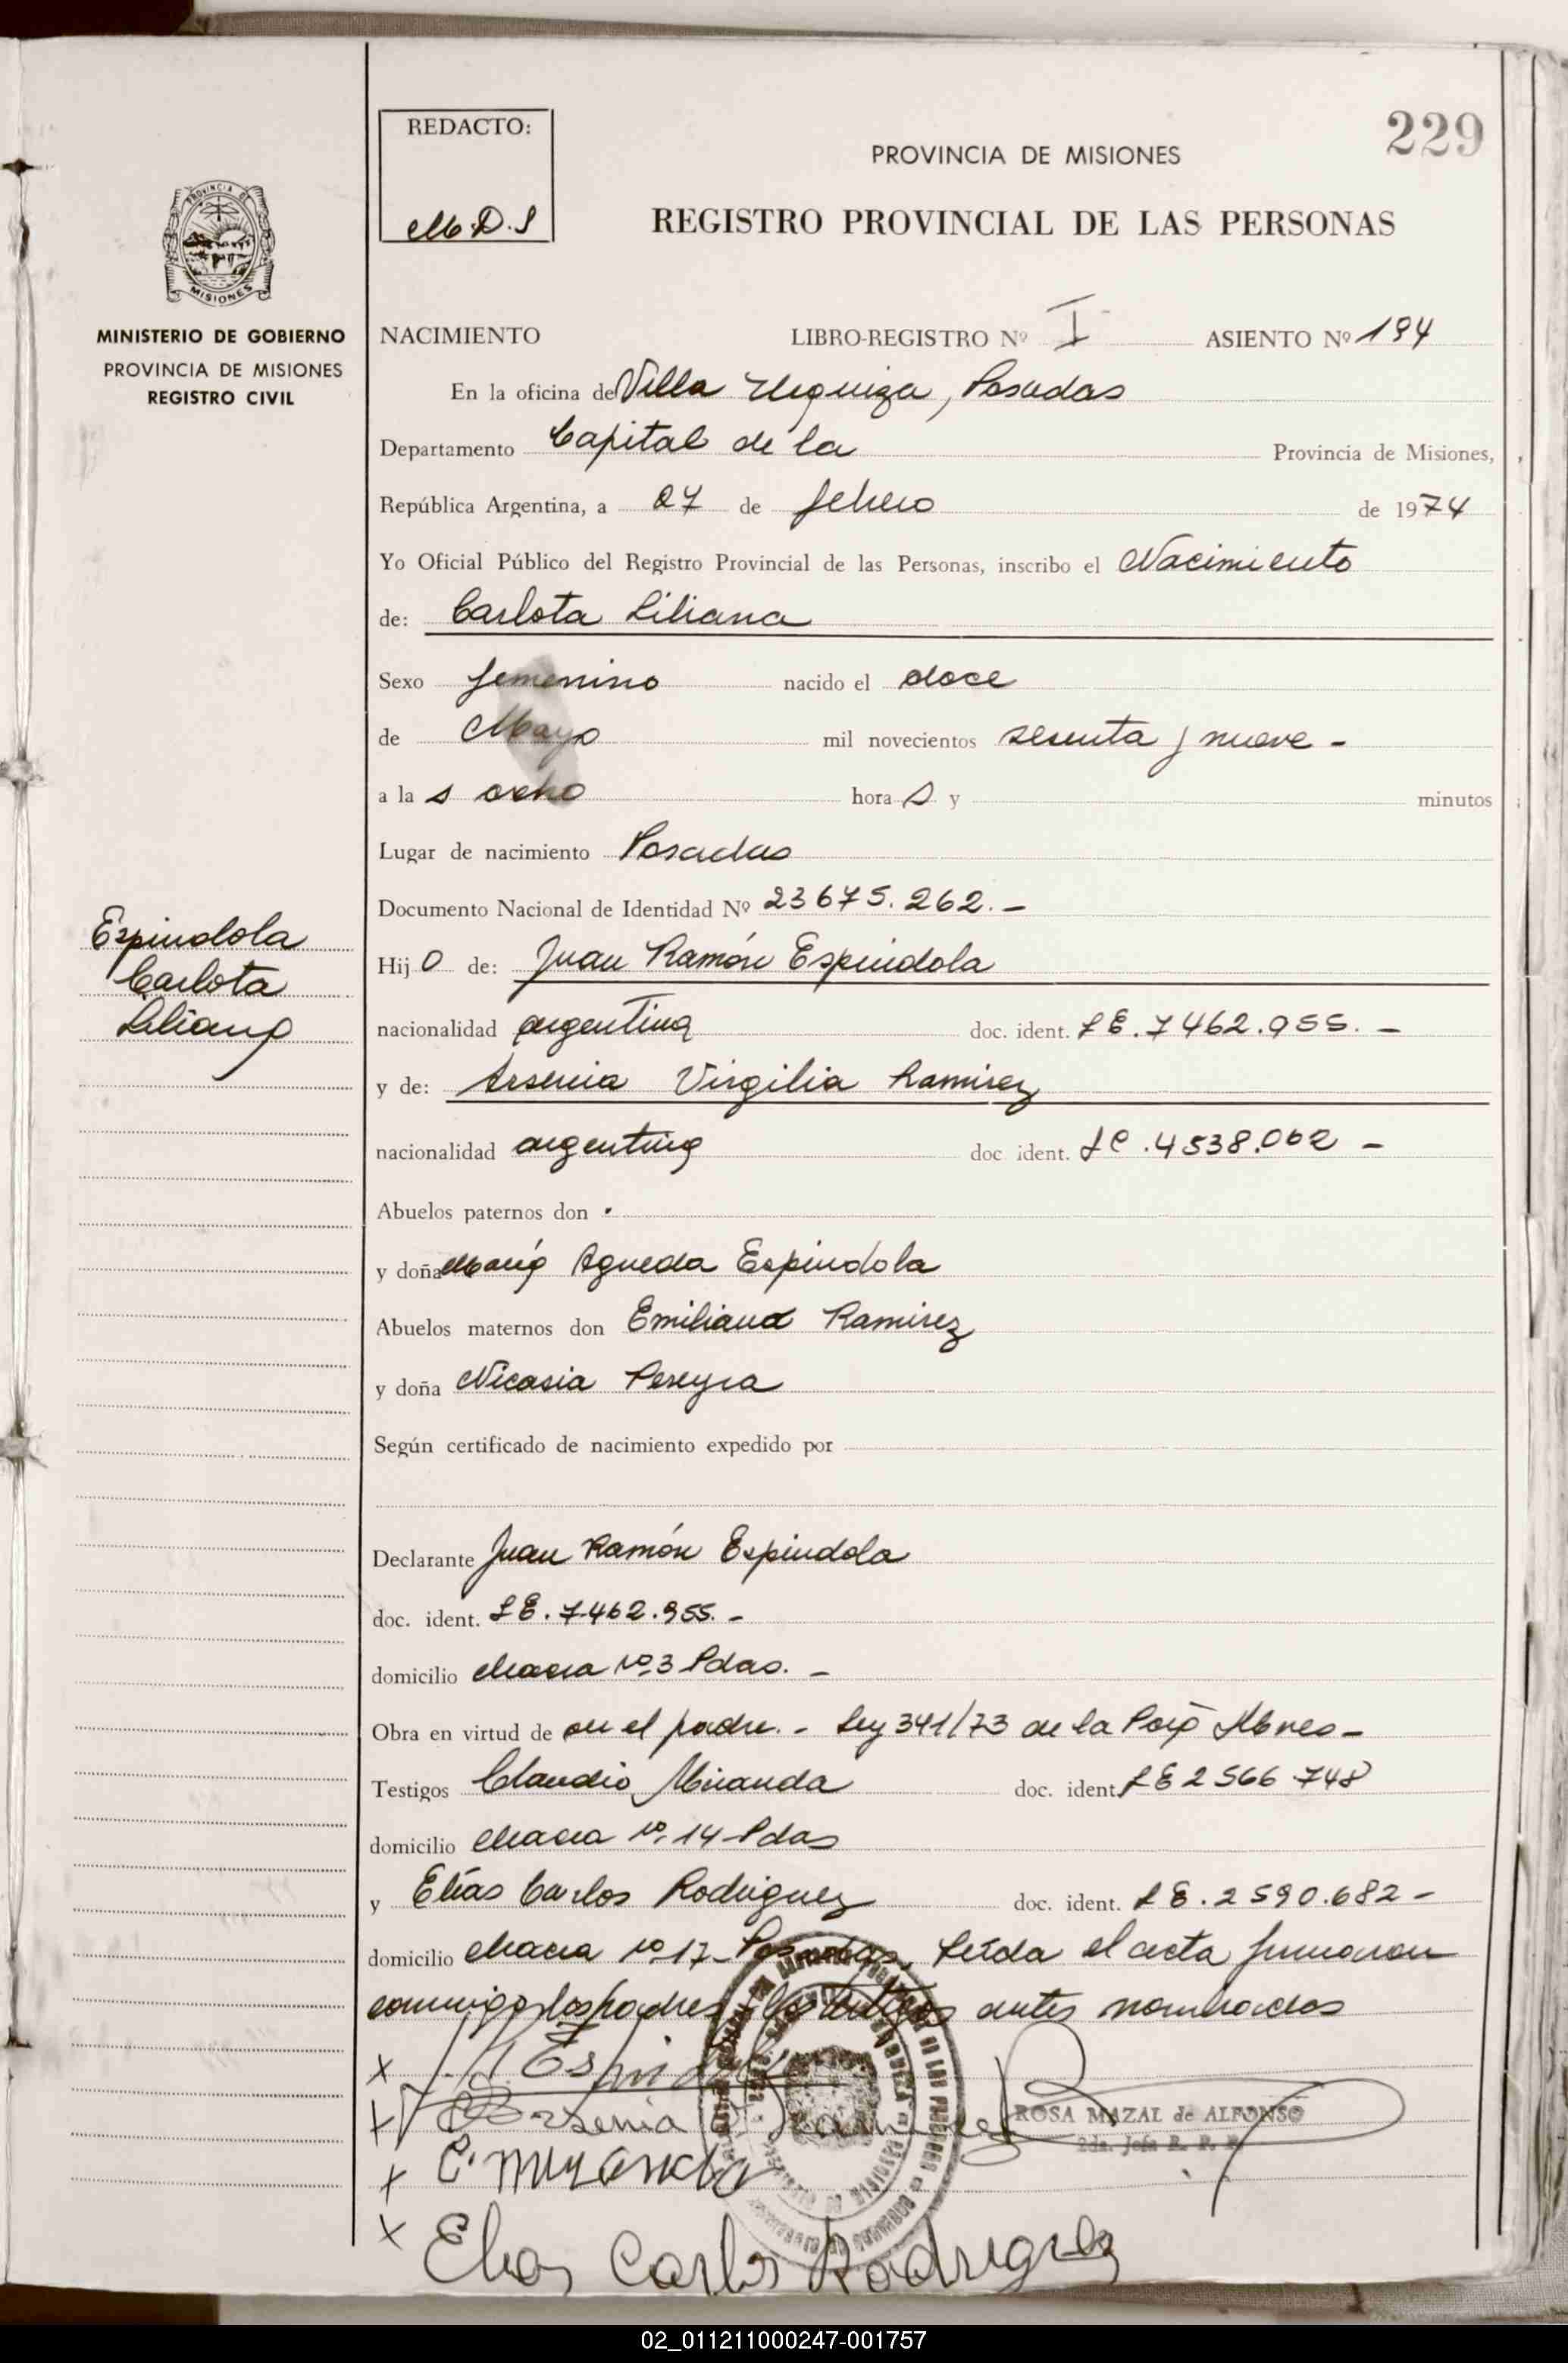 229
REDACTO:
M.D.S
PROVINCIA DE MISIONES
REGISTRO PROVINCIAL DE LAS PERSONAS
PROVINCIA DE
MISIONES
MINISTERIO DE GOBIERNO
PROVINCIA DE MISIONES
REGISTRO CIVIL
NACIMIENTO LIBRO-REGISTRO Nº I ASIENTO Nº 194
En la oficina de Villa Urquiza, Posadas
Departamento Capital de la Provincia de Misiones,
República Argentina, a 27 de febrero de 1974
Yo Oficial Público del Registro Provincial de las Personas, inscribo el Nacimiento
de: Carlota Liliana
Sexo femenino nacido el doce
de Mayo mil novecientos sesenta y nueve -
a la s ocho hora s y minutos
Lugar de nacimiento Posadas
Documento Nacional de Identidad Nº 23675.262. -
Espindola
Carlota
Liliana
Hij o de: Juan Ramón Espindola
nacionalidad argentina doc. ident. LE. 7462.955. -
y de: Arsenia Virgilia Ramirez
nacionalidad argentina doc ident. LC .4538.062 -
Abuelos paternos don
y doña María Agueda Espindola
Abuelos maternos don Emiliano Ramirez
y doña Nicasia Pereyra
Según certificado de nacimiento expedido por
Declarante Juan Ramón Espindola
doc. ident. LE. 7462.955. -
domicilio chacra nº 3 Pdas. -
Obra en virtud de ser el padre. - Ley 341/73 de la
Testigos Claudio Miranda doc. ident. LE 2566.748
domicilio chacra nº 14 Pdas
y Elías Carlos Rodriguez doc. ident. LE. 2590.682 -
domicilio chacra nº 17 - Posadas. Leída el acta firmaron
conmigo los padres y los testigos antes nombrados
x Espindola
x Arsenia Ramirez
ROSA MAZAL de ALFONSO
2da. Jefa R. P. P.
x C. Miranda
x Elias Carlos Rodriguez
02_011211000247-001757